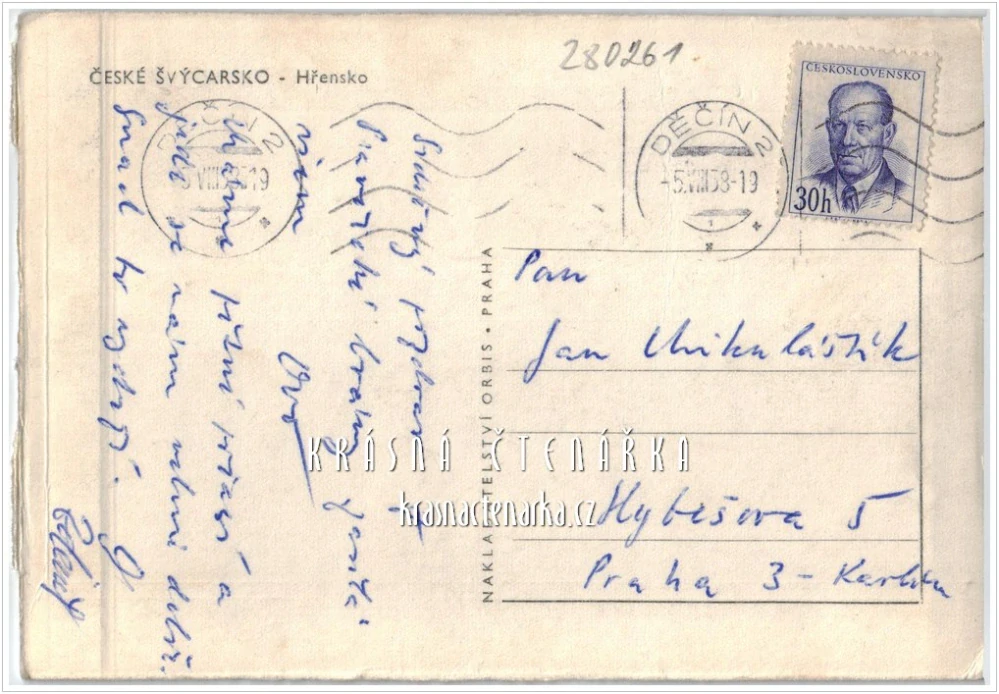 280261
ČESKÉ ŠVÝCARSKO - Hřensko
ČESKOSLOVENSKO
30h
DĚČÍN 2
-5.VIII.58-19
DĚČÍN 2
-5.VIII.58-19
Srdečný pozdrav z
Pravčické brány posílá
Vám
Máme pěkné počasí a
jede se nám velmi dobře.
Snad to vydrží.
NAKLADATELSTVÍ ORBIS • PRAHA
Pan
Jan Mikuláštík
Hybešova 5
Praha 3 - Karlín
KRÁSNÁ ČTENÁŘKA
krasnactenarka.cz